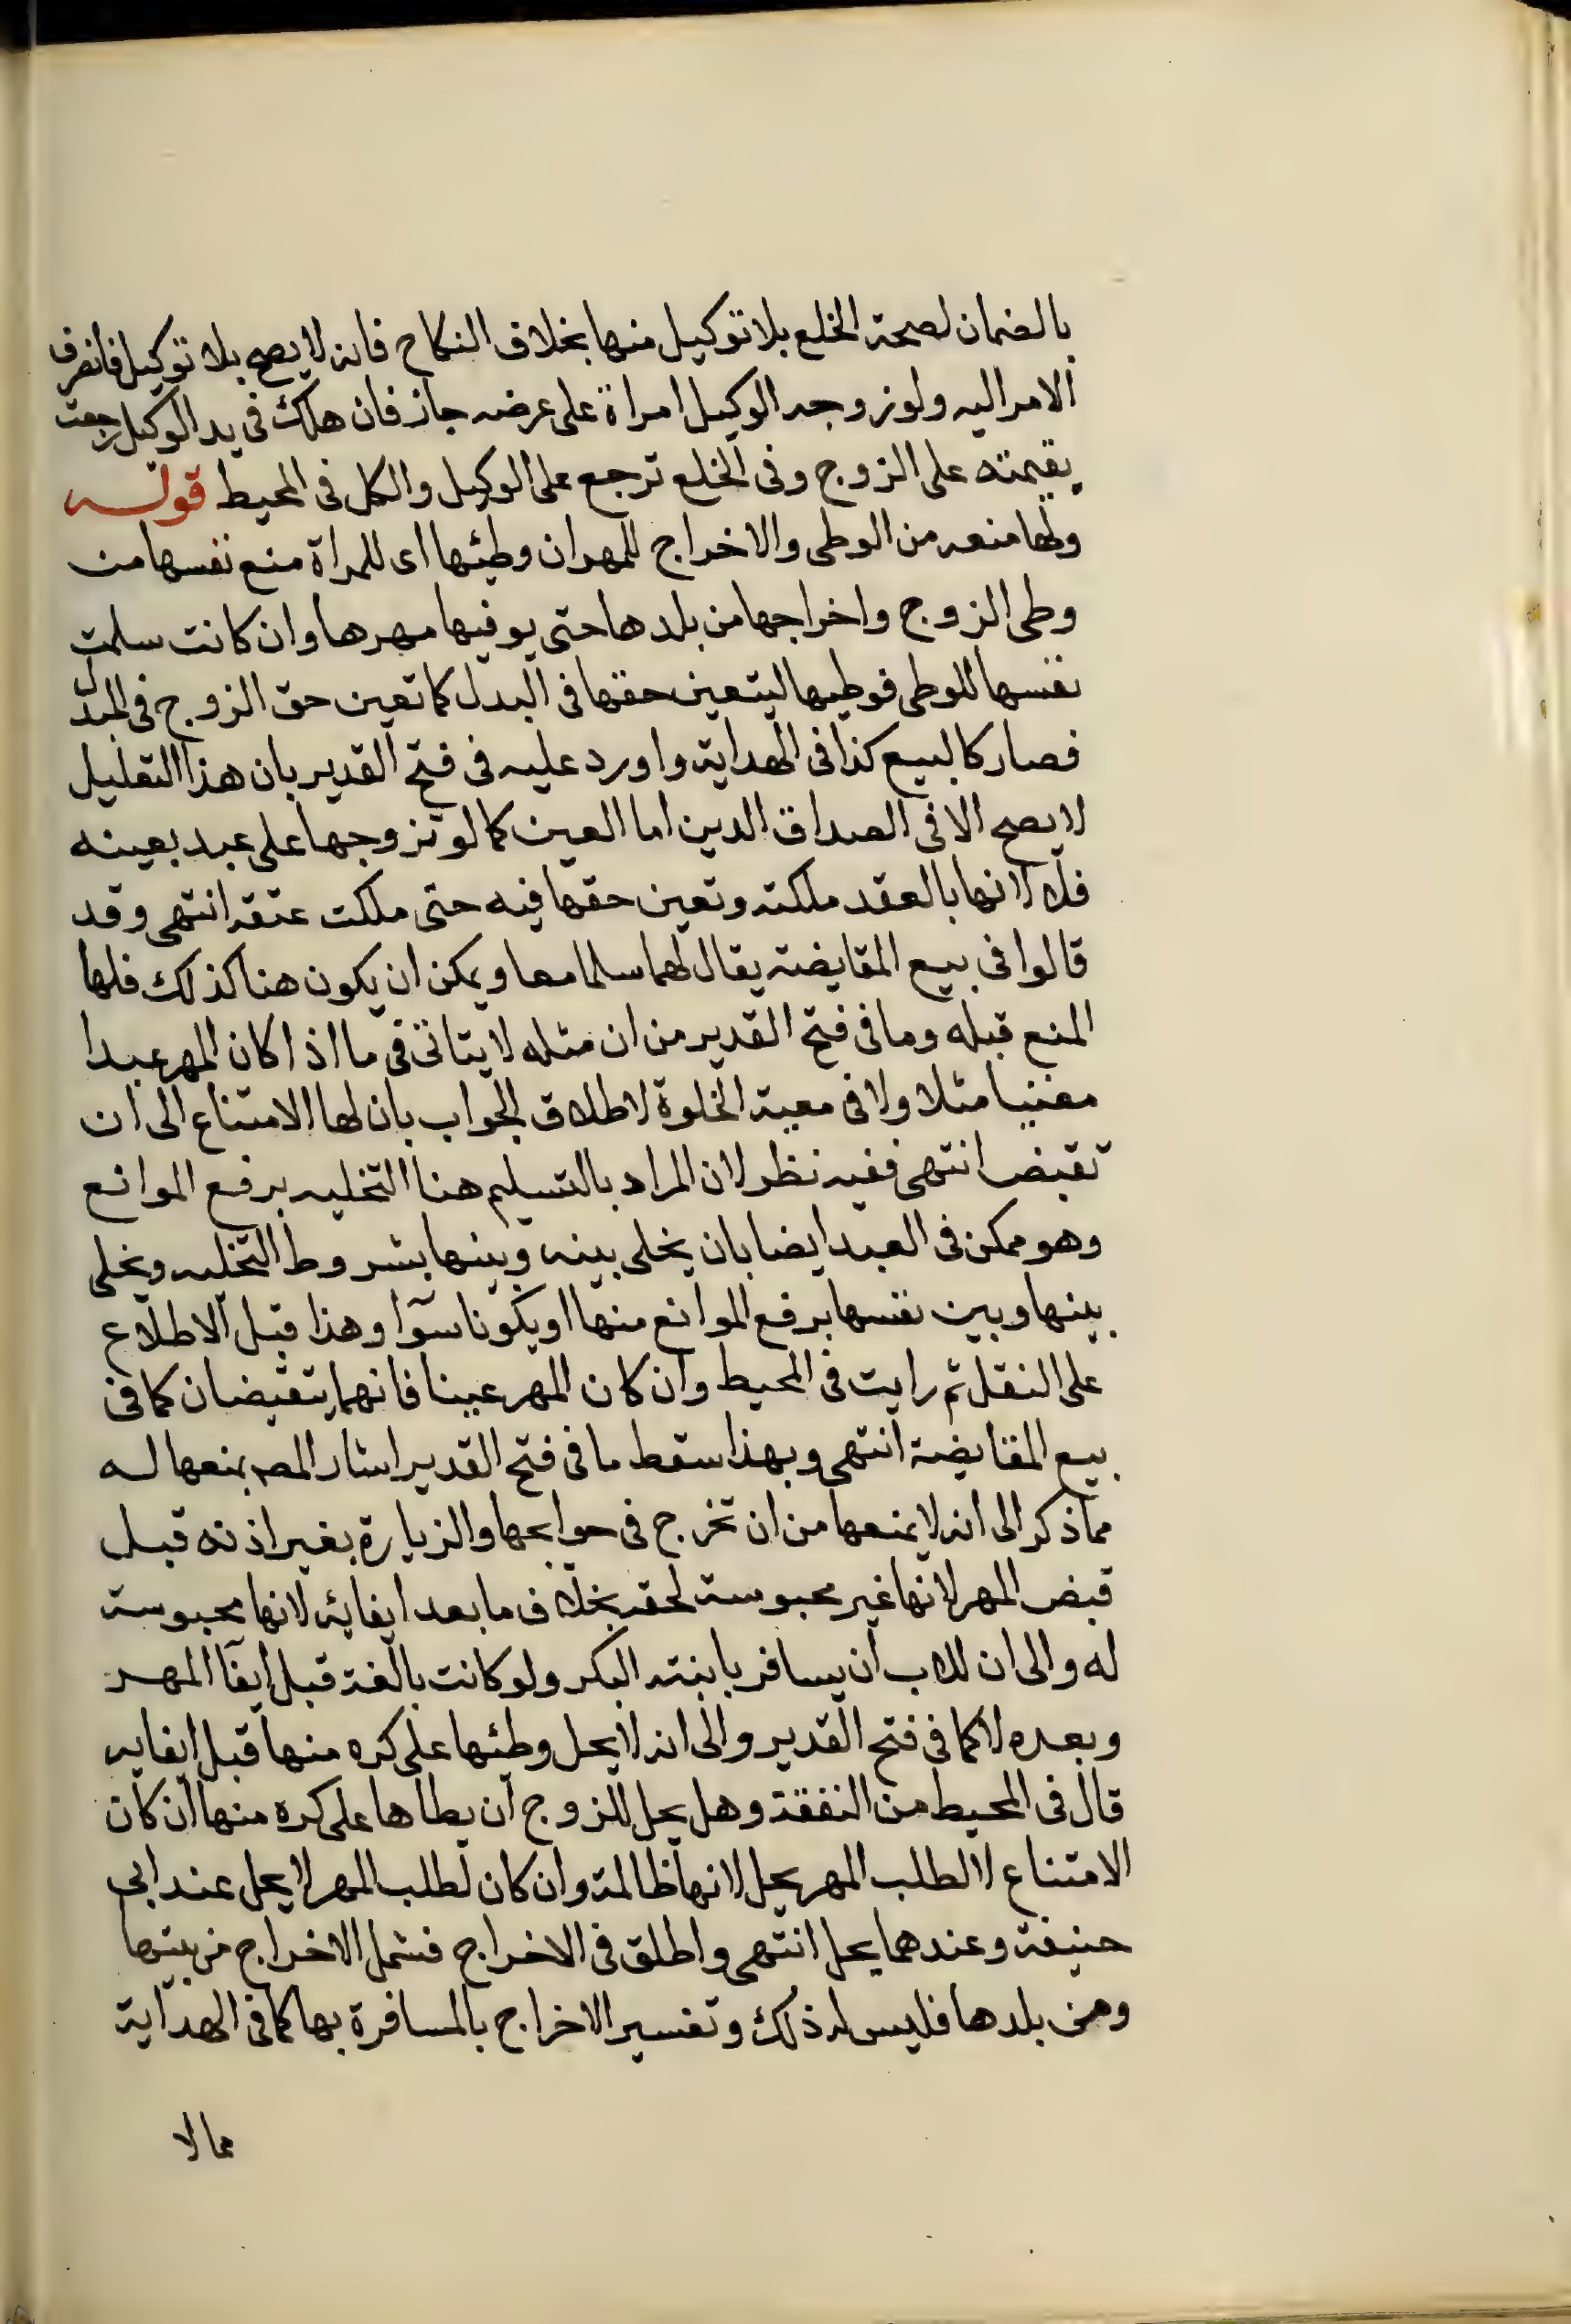 بالضمان لصحة الخلع بلا توكيل منها بخلاف النكاح فانه لا يصح بلا توكيل فانصرف
الامر اليه ولو زوجه الوكيل امراة على عرضه جاز فان هلك في يد الوكيل رجعت
بقيمته على الزوج وفي الخلع ترجع على الوكيل والكل في المحيط قوله
ولها منعه من الوطى والاخراج للمهر ان وطيئها اى للمراة منع نفسها من
وطى الزوج واخراجها من بلدها حتى يوفيها مهرها وان كانت سلمت
نفسها للوطى فوطيها ليتعين حقها في البدل كما تعين حق الزوج في المبدل
فصار كالبيع كذا في الهداية واورد عليه في فتح القدير بان هذا التعليل
لا يصح الا في الصداق الدين اما العين كما لو تزوجها على عبد بعينه
فلا لانها بالعقد ملكته وتعين حقها فيه حتى ملكت عتقه انتهى وقد
قالوا في بيع المقايضة يقال لهما سلما معا ويمكن ان يكون هنا كذلك فلها
المنع قبله وما في فتح القدير من ان مثله لا يتاتى في ما اذا كان المهر عبدا
معينا مثلا ولا في معية الخلوة لاطلاق الجواب بان لها الامتناع الى ان
تقبض انتهى ففيه نظر لان المراد بالتسليم هنا التخليه برفع الموانع
وهو ممكن في العبد ايضا بان يخلى بينه وبينها بشروط التخليه ويخلى
بينها وبين نفسها برفع الموانع منها او يكونا سوآ وهذا قبل الاطلاع
على النقل ثم رايت في المحيط وان كان المهر عينا فانهما يتقبضان كما في
بيع المقايضة انتهى وبهذا سقط ما في فتح القدير اشار المصـ بمنعها له
مما ذكر الى انه لا يمنعها من ان تخرج في حوايجها والزيارة بغير اذنه قبل
قبض المهر لانها غير محبوسة لحقه بخلاف ما بعد ايفائه لانها محبوسة
له والى ان للاب ان يسافر بابنته البكر ولو كانت بالغة قبل ايفآ المهر
وبعده لا كما في فتح القدير والى انه لا يحل وطيئها على كره منها قبل ايفايه
قال في المحيط من النفقة وهل يحل للزوج ان يطاها على كره منها ان كان
الامتناع لا لطلب المهر يحل لانها ظالمة وان كان لطلب المهر لا يحل عند ابى
حنيفة وعندهما يحل انتهى واطلق في الاخراج فشمل الاخراج من بيتها
ومن بلدها فليس له ذلك وتفسير الاخراج بالمسافرة بها كما في الهداية
مما لا